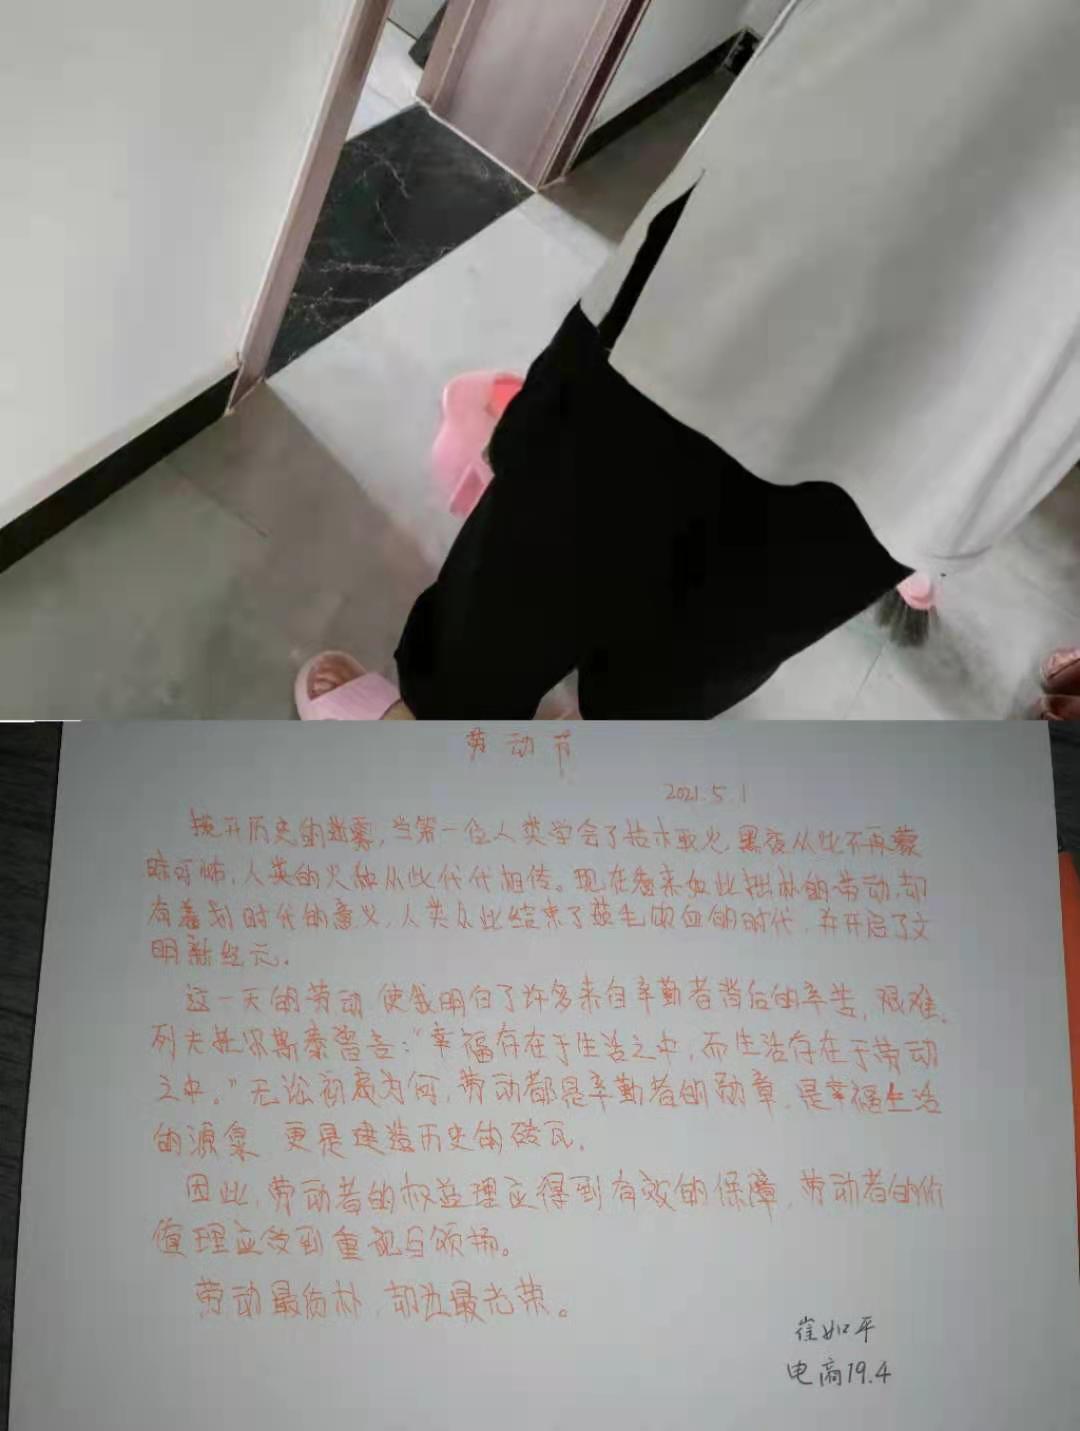 劳动节
2021.5.1
拨开历史的迷雾，当第一位人类学会了钻木取火，黑夜从此不再蒙
昧可怖，人类的火种从此代代相传。现在看来如此拙朴的劳动，却
有着划时代的意义，人类从此结束了茹毛饮血的时代，并开启了文
明新纪元。
这一天的劳动，使我明白了许多来自辛勤者背后的辛苦，艰难。
列夫托尔斯泰曾言：“幸福存在于生活之中，而生活存在于劳动
之中。”无论初衷为何，劳动都是辛勤者的勋章，是幸福生活
的源泉，更是建造历史的砖瓦。
因此，劳动者的权益理应得到有效的保障，劳动者的价
值理应受到重视与颂扬。
劳动最质朴，却也最光荣。
崔如平
电商19.4